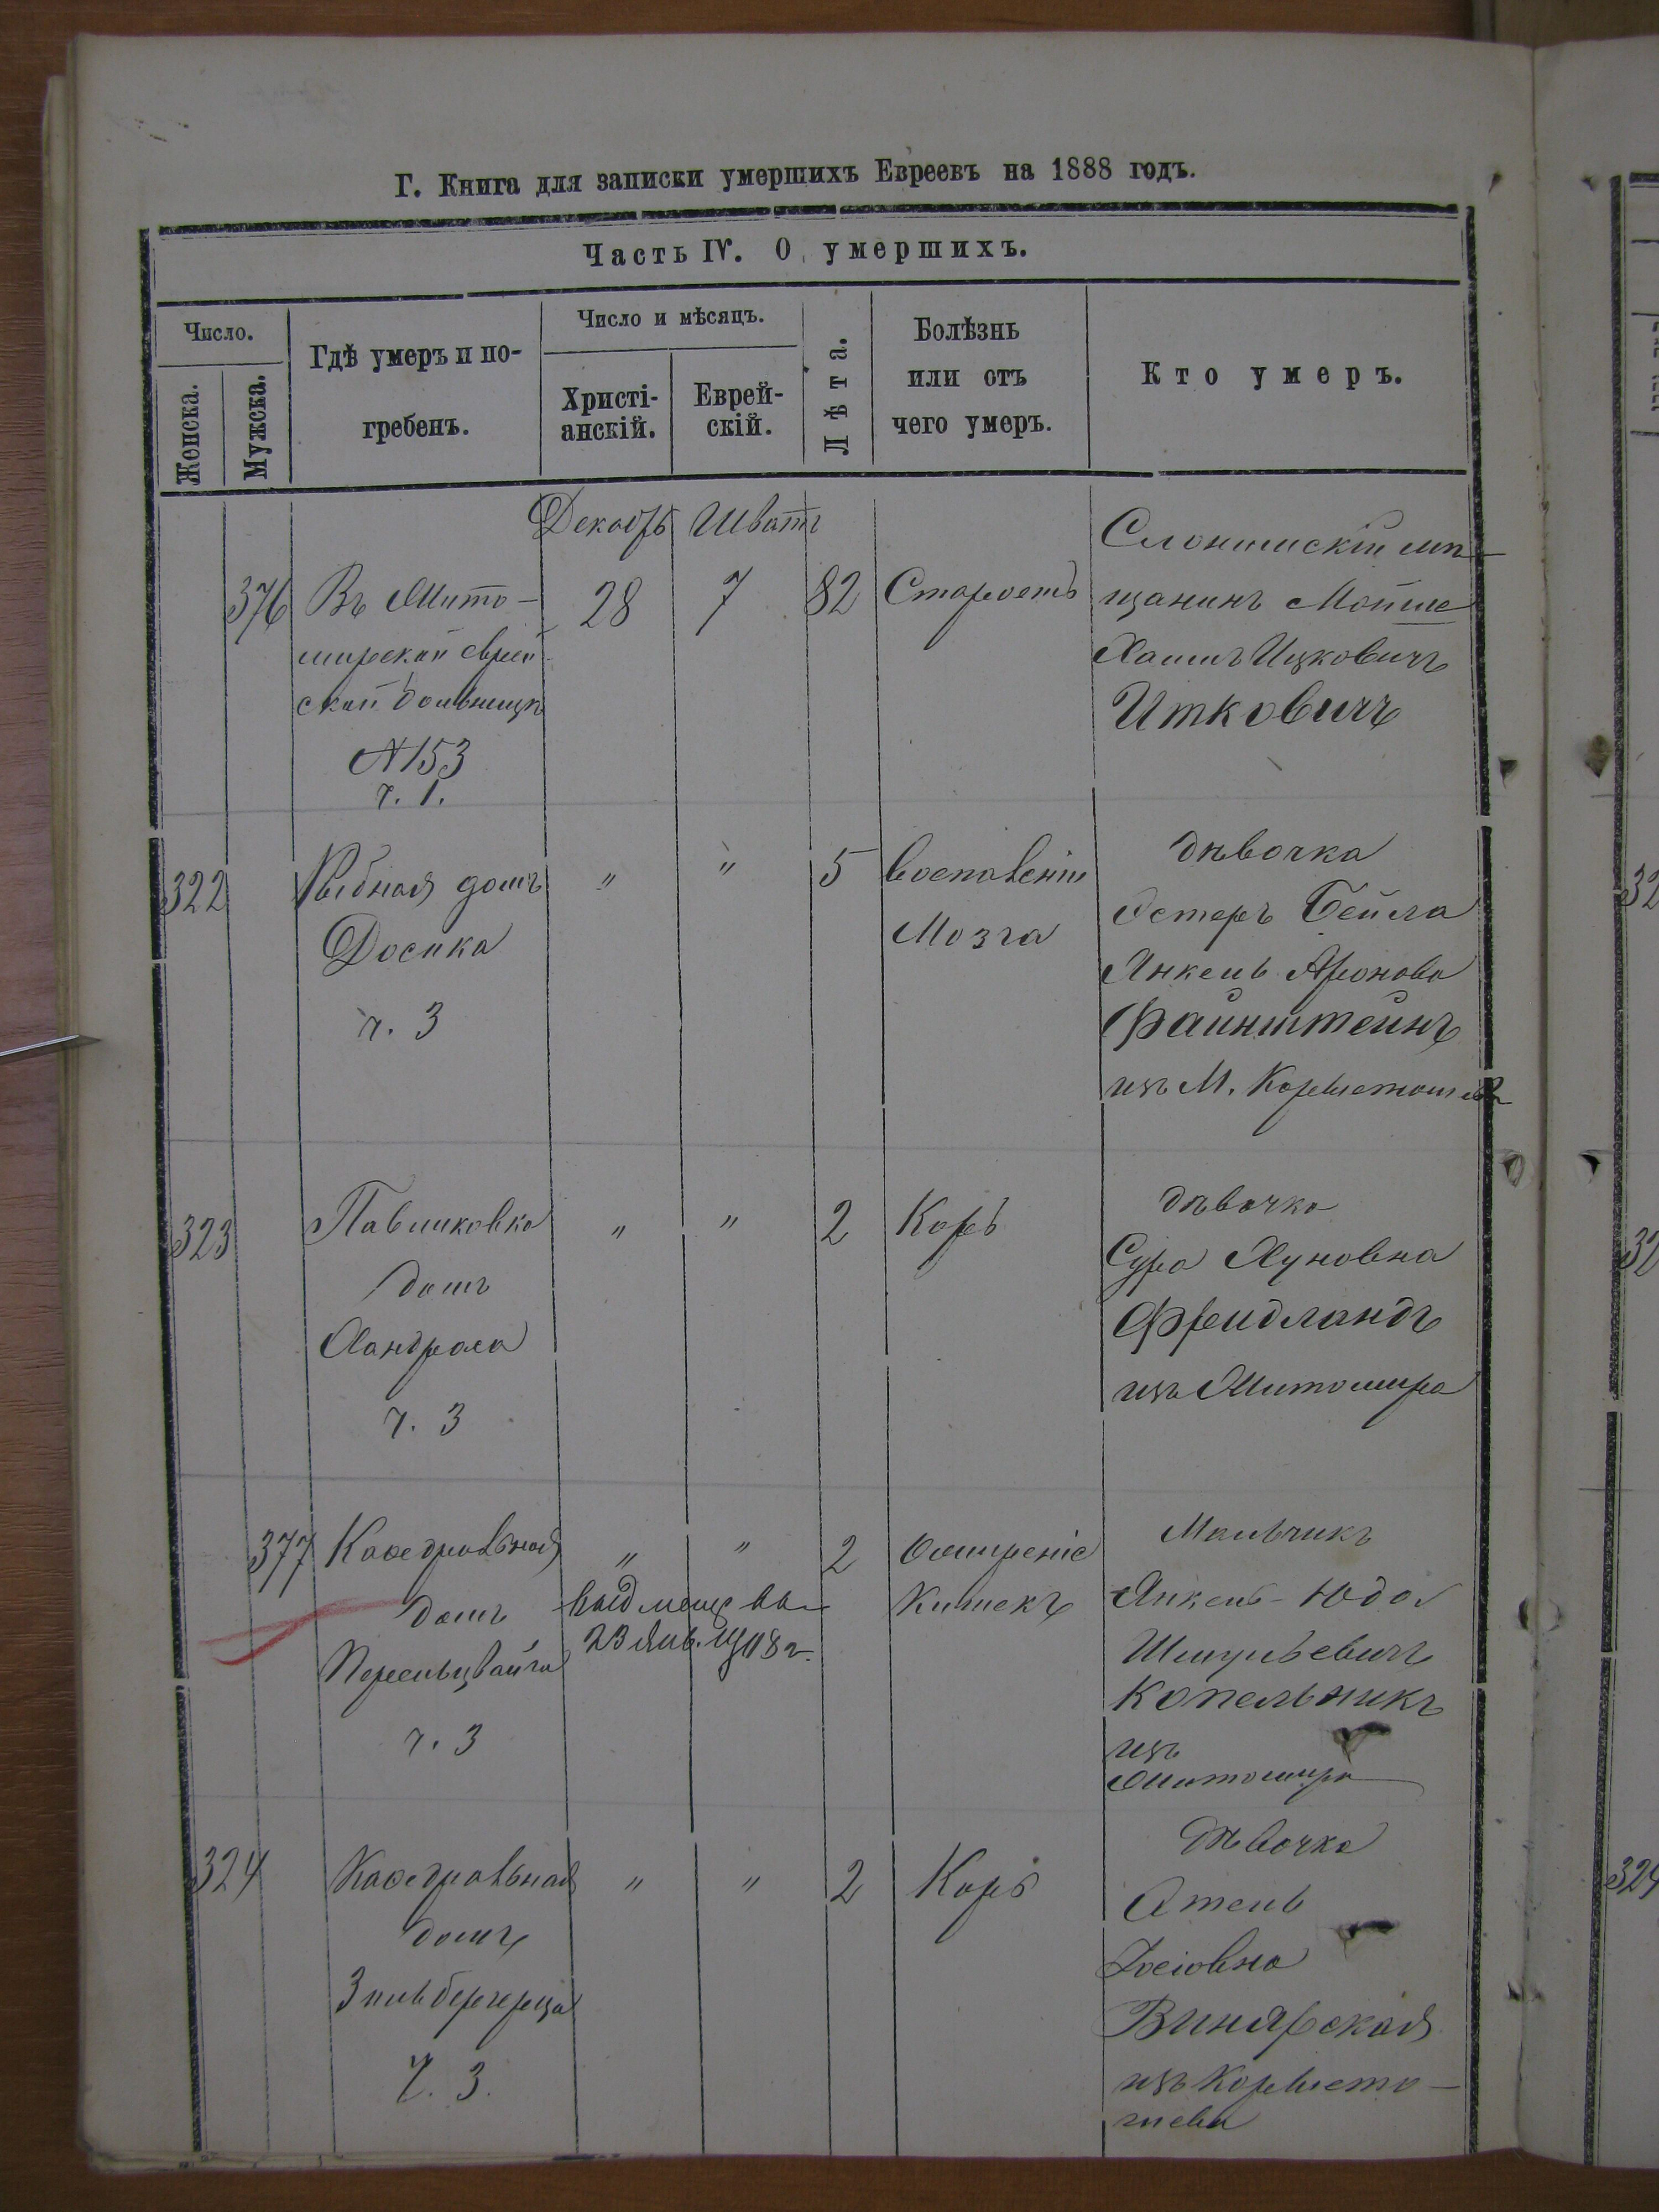 Г. Книга для записки умершихъ Евреевъ на 1888 годъ.
Часть IV. О умершихъ.
Число.
Женска.
Мужска.
Гдѣ умеръ и по-
гребенъ.
Число и мѣсяцъ.
Христі-
анскій.
Еврей-
скій.
Лѣта.
Болѣзнь
или отъ
чего умеръ.
Кто умеръ.
Декабрь Шватъ
376
Въ Жито-
мирской еврей-
ской больницѣ
№153
ч. 1.
28
7
82
Старость
Слонимскій мѣ-
щанинъ Мойше
Хаимъ Ицковичъ
Итковичъ
322
Рыбная домъ
Досика
ч. 3
"
"
5
Воспаленіе
Мозга
дѣвочка
Эстеръ Бейла
Янкель Аронова
Файнштейнъ
изъ М. Коростышева
323
Павликовка
домъ
ч. 3
"
"
2
Корь
дѣвочка
Сура Хуновна
Фрейдландъ
изъ Житомира
377
Каѳедральная
домъ
ч. 3
"
"
23 Янв.
2
Кишекъ
Мальчикъ
Янкель-Юда
Шмульевичъ
Копельникъ
изъ
Житомира
324
Каѳедральная
домъ
Ч. 3.
"
"
2
Корь
Дѣвочка
Этель
Іосіовна
Винярская
изъ Коросты-
шева